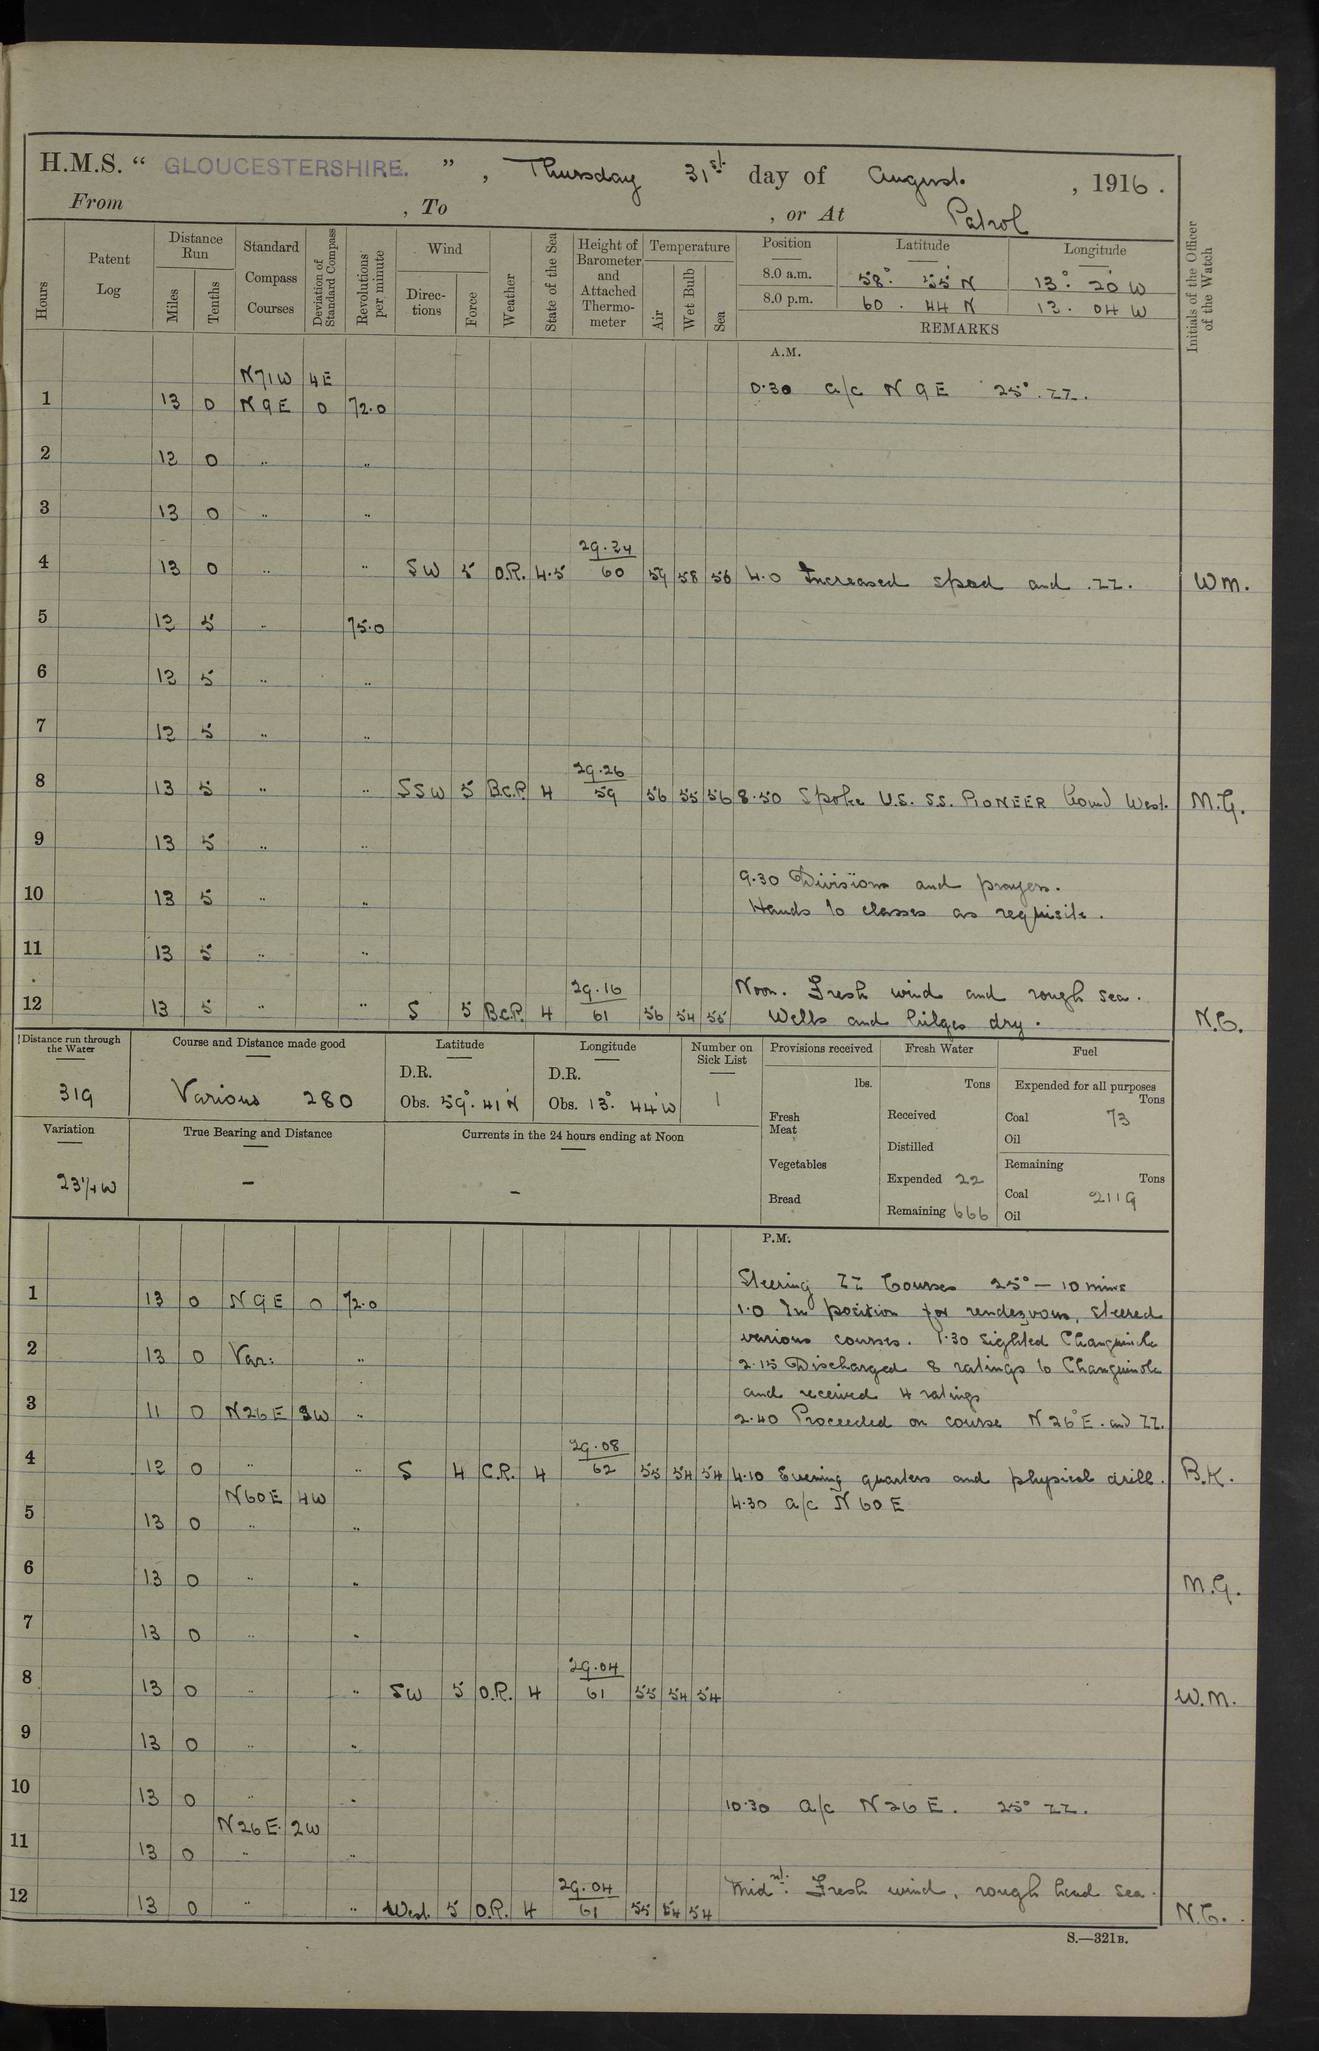 H.M.S. " GLOUCESTERSHIRE. " , Thursday 31st day of August. , 1916 .
From , To , or At Patrol
Hours
Patent Log
Distance Run
Miles
Tenths
Standard Compass Courses
Deviation of Standard Compass
Revolutions per minute
Wind
Directions
Force
Weather
State of the Sea
Height of Barometer and Attached Thermometer
Temperature
Air
Wet Bulb
Sea
Position Latitude Longitude
8.0 a.m. 58° 55' N 13° 20' W
8.0 p.m. 60 . 44 N 13 . 04 W
REMARKS
Initials of the Officer of the Watch
A.M.
N71W 4E
1 13 0 N9E 0 72.0 0.30 a/c N 9 E 25° ZZ.
2 13 0 " "
3 13 0 " "
29.24
4 13 0 " " SW 5 O.R. 4.5 60 59 58 56 4.0 Increased speed and ZZ. WM.
5 13 5 " 75.0
6 13 5 " "
7 13 5 " "
29.26
8 13 5 " " SSW 5 B.C.P. 4 59 56 55 56 8.50 Spoke U.S. SS. PIONEER bound West. M.G.
9 13 5 " "
9.30 Divisions and prayers.
10 13 5 " " Hands to classes as requisite.
11 13 5 " "
29.16 Noon. Fresh wind and rough sea.
12 13 5 " " S 5 B.C.P. 4 61 56 54 55 Wells and bilges dry.
Distance run through the Water
319
Course and Distance made good
Various 280
Latitude
D.R.
Obs. 59° 41' N
Longitude
D.R.
Obs. 13° 44' W
Number on Sick List
1
Provisions received
lbs.
Fresh Meat
Vegetables
Bread
Fresh Water
Tons
Received
Distilled
Expended 22
Remaining 666
Fuel
Expended for all purposes
Tons
Coal 73
Oil
Remaining
Tons
Coal 2119
Oil
Variation
23 1/4 W
True Bearing and Distance
–
Currents in the 24 hours ending at Noon
–
P.M.
Steering ZZ Courses 25° – 10 mins
1 13 0 N9E 0 72.0 1.0 In position for rendezvous, steered
various courses. 1.30 Sighted Changuinola
2 13 0 Var: " 2.15 Discharged 8 ratings to Changuinola
and received 4 ratings
3 11 0 N26E 3W " 2.40 Proceeded on course N26°E. and ZZ.
29.08
4 12 0 " " S 4 C.R. 4 62 55 54 54 4.10 Evening quarters and physical drill. B.K.
N60E 4W 4.30 a/c N 60 E
5 13 0 " "
6 13 0 " " M.G.
7 13 0 " "
29.04
8 13 0 " " SW 5 O.R. 4 61 55 54 54 W.M.
9 13 0 " "
10 13 0 " " 10.30 a/c N26E. 25° ZZ.
N26E. 2W
11 13 0 " "
29.04 Midnt. Fresh wind, rough head sea.
12 13 0 " " West. 5 O.R. 4 61 55 54 54
S.—321B.